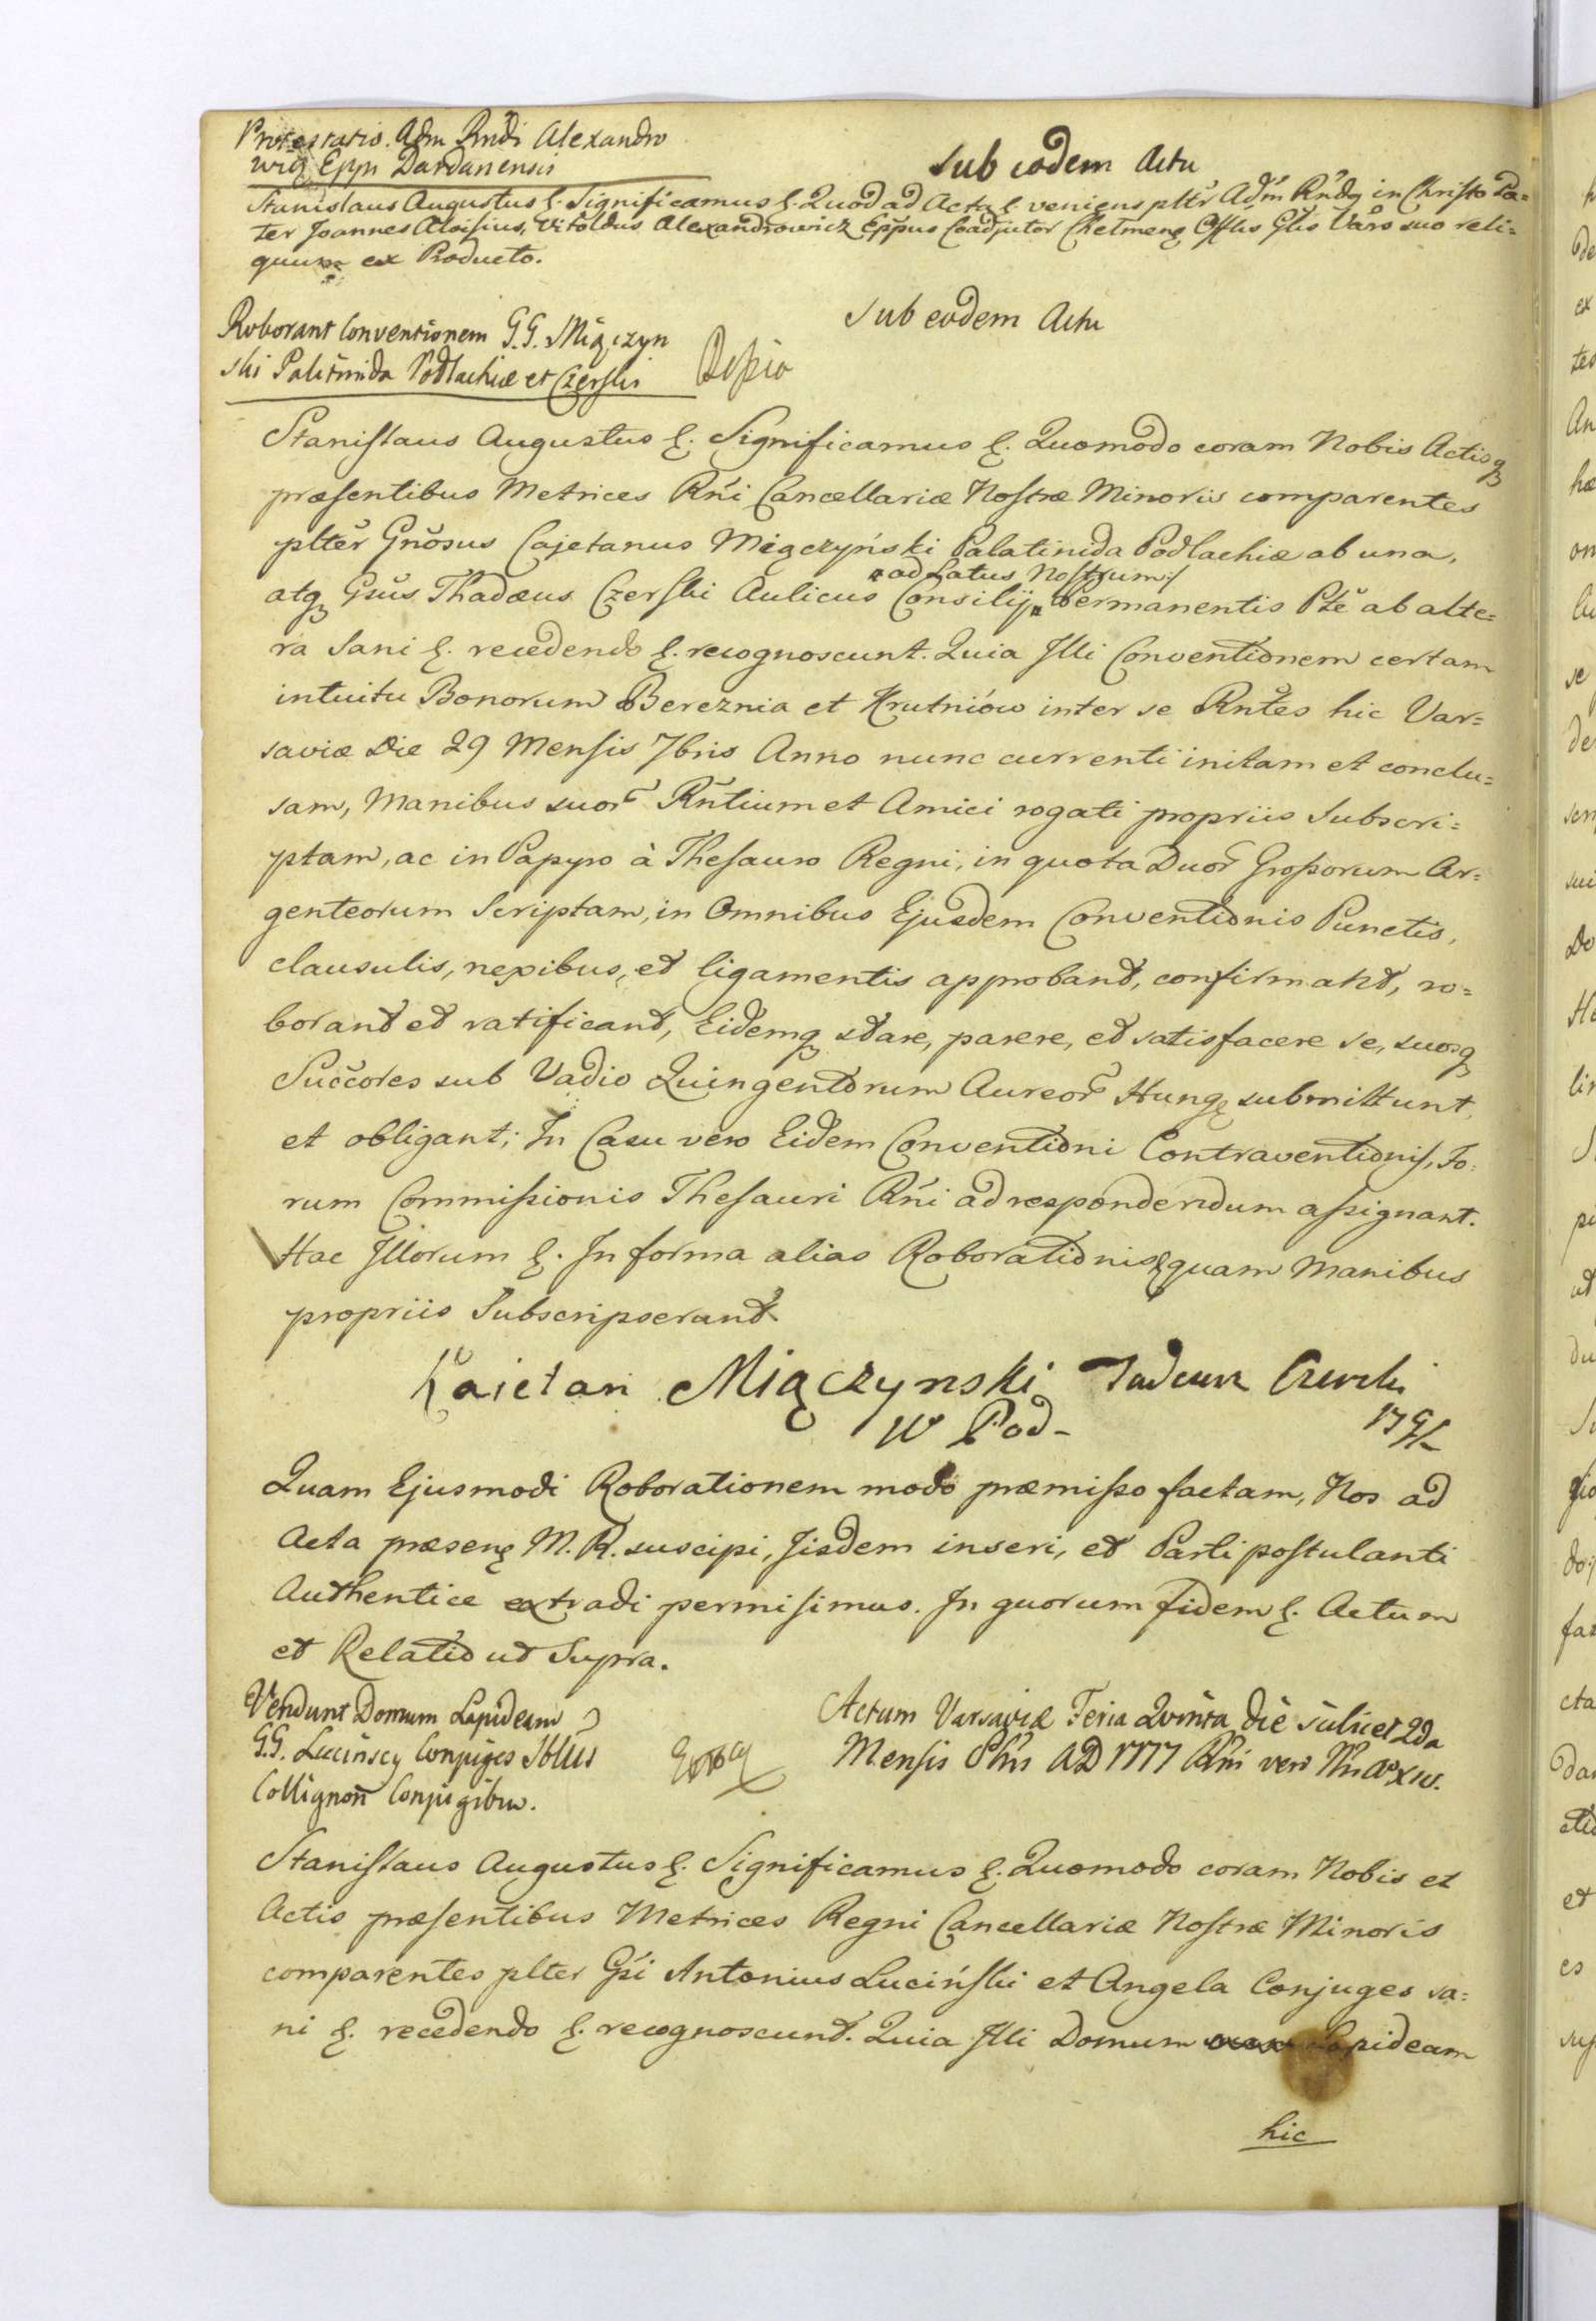 Protestatio Adm Rndi Alexandro
wicz Eppi Dardanensis
Sub eodem Actu
Stanislaus Augustus &. Significamus &. Quod ad Acta &. veniens pltr Adm Rndg in Christo Pa=
ter Joannes Aloisius, Vitoldus Alexandrowicz Eppus Coadjutor Chelmeng Offlis Glis Vars suo reli=
quum ex Producto.
Sub eodem Actu
Roborant Conventionem G.G. Miączyn
ski Palatinida Podlachiæ et Czerski
Stanislaus Augustus &. Significamus &. Quomodo coram Nobis Actisq
præsentibus Metrices Rni Cancellariæ Nostræ Minoris comparentes
plter Gnosus Cajetanus Miączyński Palatinida Podlachiæ ab una,
atq Gsus Thadæus Czerski Aulicus Consilij Permanentis Pte ab alte=
ad Latus Nostrum
ra Sani &. recedendo &. recognoscunt. Quia Illi Conventionem certam
intuitu Bonorum Bereznia et Krutniów inter se Rntes hic Var=
saviæ Die 29 Mensis 7bris Anno nunc currenti initam et conclu=
sam, Manibus suor Rntium et Amici rogati propriis Subscri=
ptam, ac in Papyro à Thesauro Regni, in quota Duor Grossorum Ar=
genteorum Scriptam, in Omnibus Ejusdem Conventionis Punctis,
clausulis, nexibus, et ligamentis approbant, confirmant, ro=
borant et ratificant, Eidemq stare, parere, et satisfacere se, suosq
Succores sub Vadio Quingentorum Aureor Hung submittunt,
et obligant; In Casu vero Eidem Conventioni Contraventionis, Fo=
rum Commissionis Thesauri Rni ad respondendum assignant.
Hac Illorum &. In forma alias Roborationis quam Manibus
propriis Subscripserant.
Kaietan Miączynski Tadeusz Czerski
W Pod-
Quam Ejusmodi Roborationem modo præmisso factam, Nos ad
Acta præseng M. R. suscipi, Iisdem inseri, et Parti postulanti
Authentice extradi permisimus. In quorum fidem &. Actum
et Relatio ut Supra.
Vendunt Domum Lapideam
G.G. Lucińscy Conjuges Sblis
Collignon Conjugibus.
Actum Varsaviæ Feria Quinta die scilicet 2da
Mensis 8bris AD 1777 Rni vero Nri Ao XIV.
Stanislaus Augustus &. Significamus &. Quomodo coram Nobis et
Actis præsentibus Metrices Regni Cancellariæ Nostræ Minoris
comparentes plter Gsi Antonius Luciński et Angela Conjuges sa=
ni &. recedendo &. recognoscunt. Quia Illi Domum Lapideam
hic